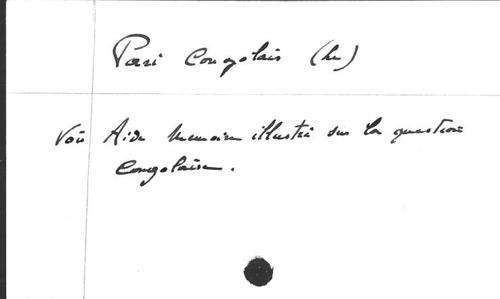 Pari Congolais (Le)
Voir Aide Memoire illustré sur la question
Congolaise.